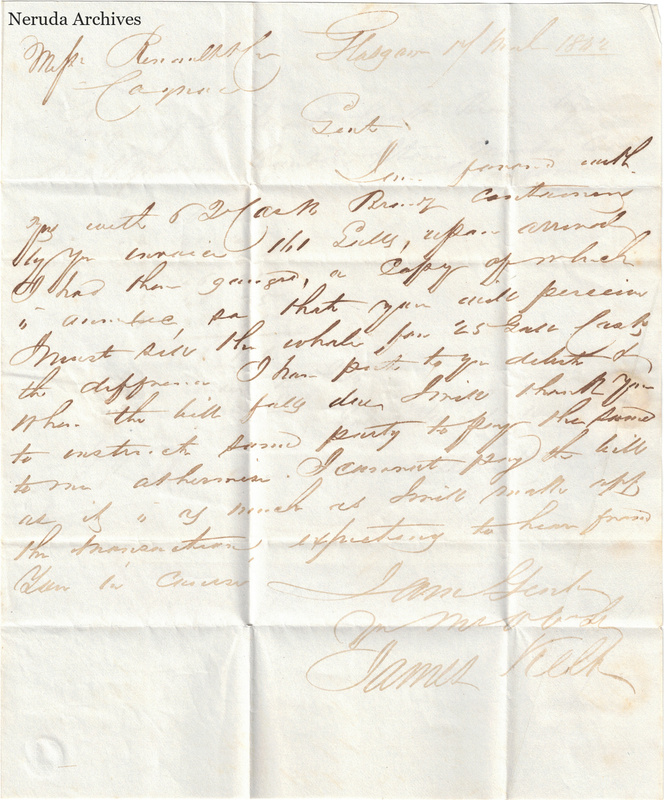 Neruda Archives
Messrs Renault & Co Glasgow 17 March
Cognac
Gent
I am favord with
yrs with 6 Qr Cask Brandy containing
by yr invoice 161 Galls, upon arrival
I had them gauged, a Copy of which
is so that you will perceive
I must sell the whole for 25 Gall Casks
the difference I have put to yr debit &
when the bill falls due I will thank you
to instruct some party to pay the same
to me otherwise I cannot pay the bill
as it is as much as I will make off
the transaction expecting to hear from
You in course
I am Gent
Yr Mo Ob
James